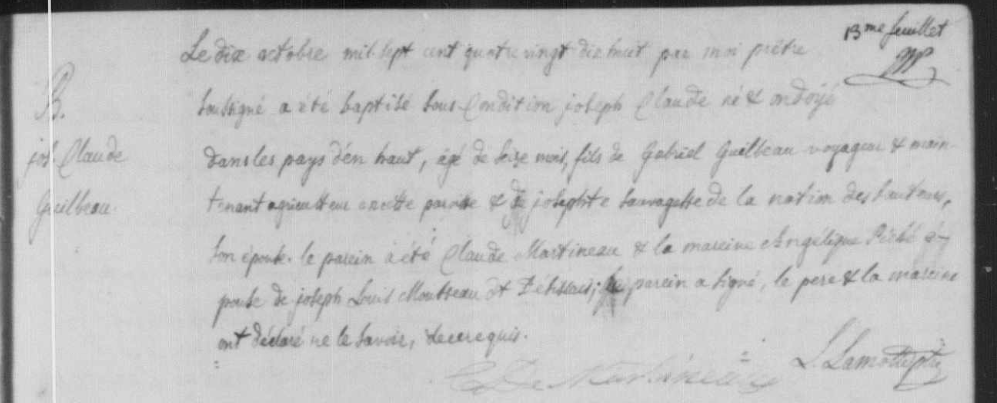 13me feuillet
Le dix octobre mil sept cent quatre vingt dix huit par moi prêtre
B. soussigné a été baptisé sous-Condition joseph Claude né & ondoyé
jos. Claude dans les pays d'én haut, agé de seize mois, fils de Gabriel Guilbeau voyageur & main-
Guilbeau. tenant agriculteur en cette paroisse & de josephte sauvagesse de la nation des sauteurs,
son épouse. le parein a été Claude Martineau & la mareine Angélique Piché é-
pouse de joseph Louis Mousseau dt Déssais; parein a signé, le pere & la mareine
ont déclaré ne le savoir, de ce requis.
Martineau L. Lamotte ptre